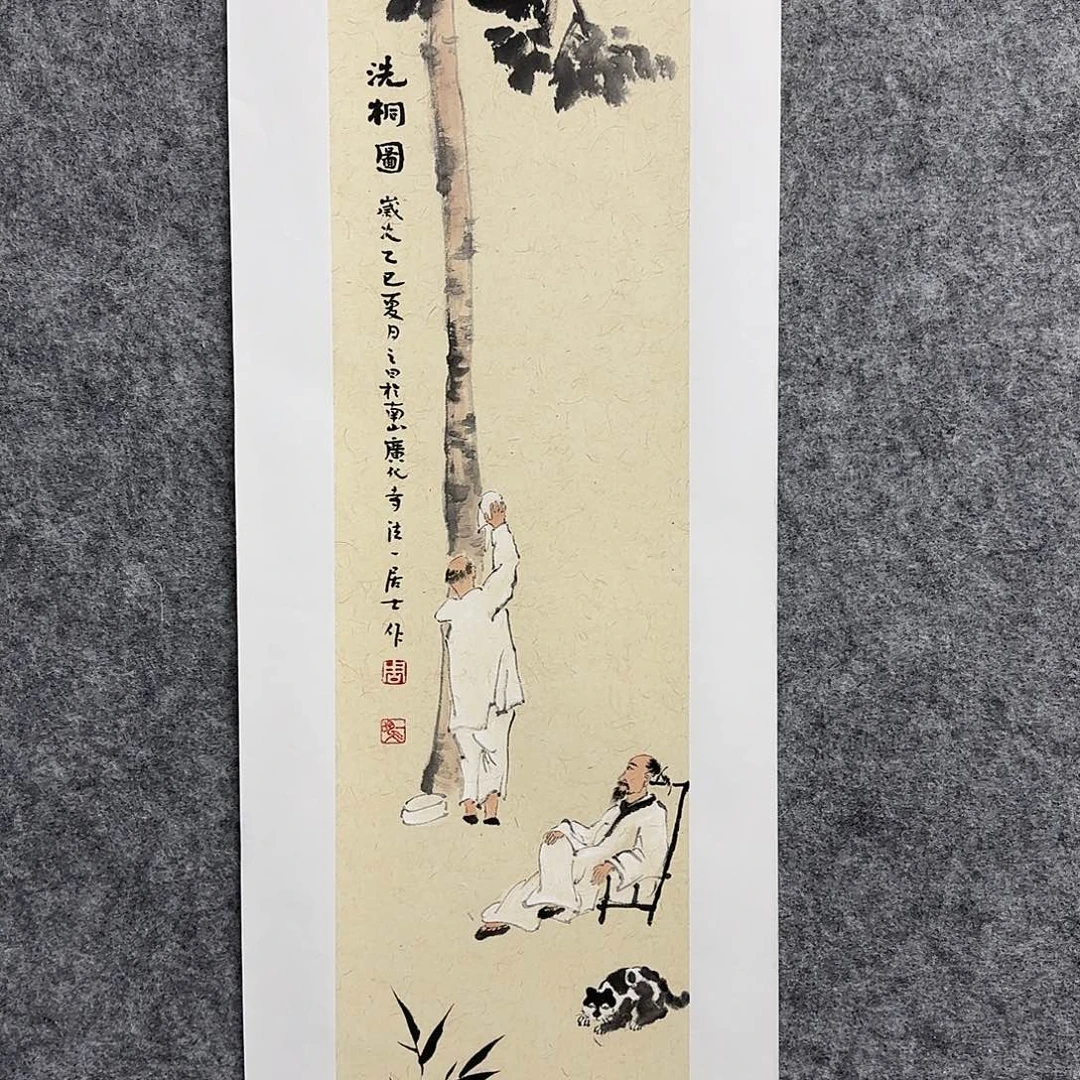 洗桐圖
歲次乙巳夏月之田於南山廣化寺法一居士作
周